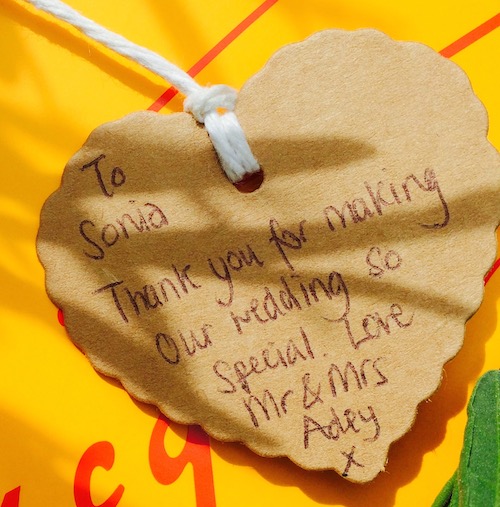 To
Sonia
Thank you for making
Our wedding so
Special. Love
Mr & Mrs
Adey
x